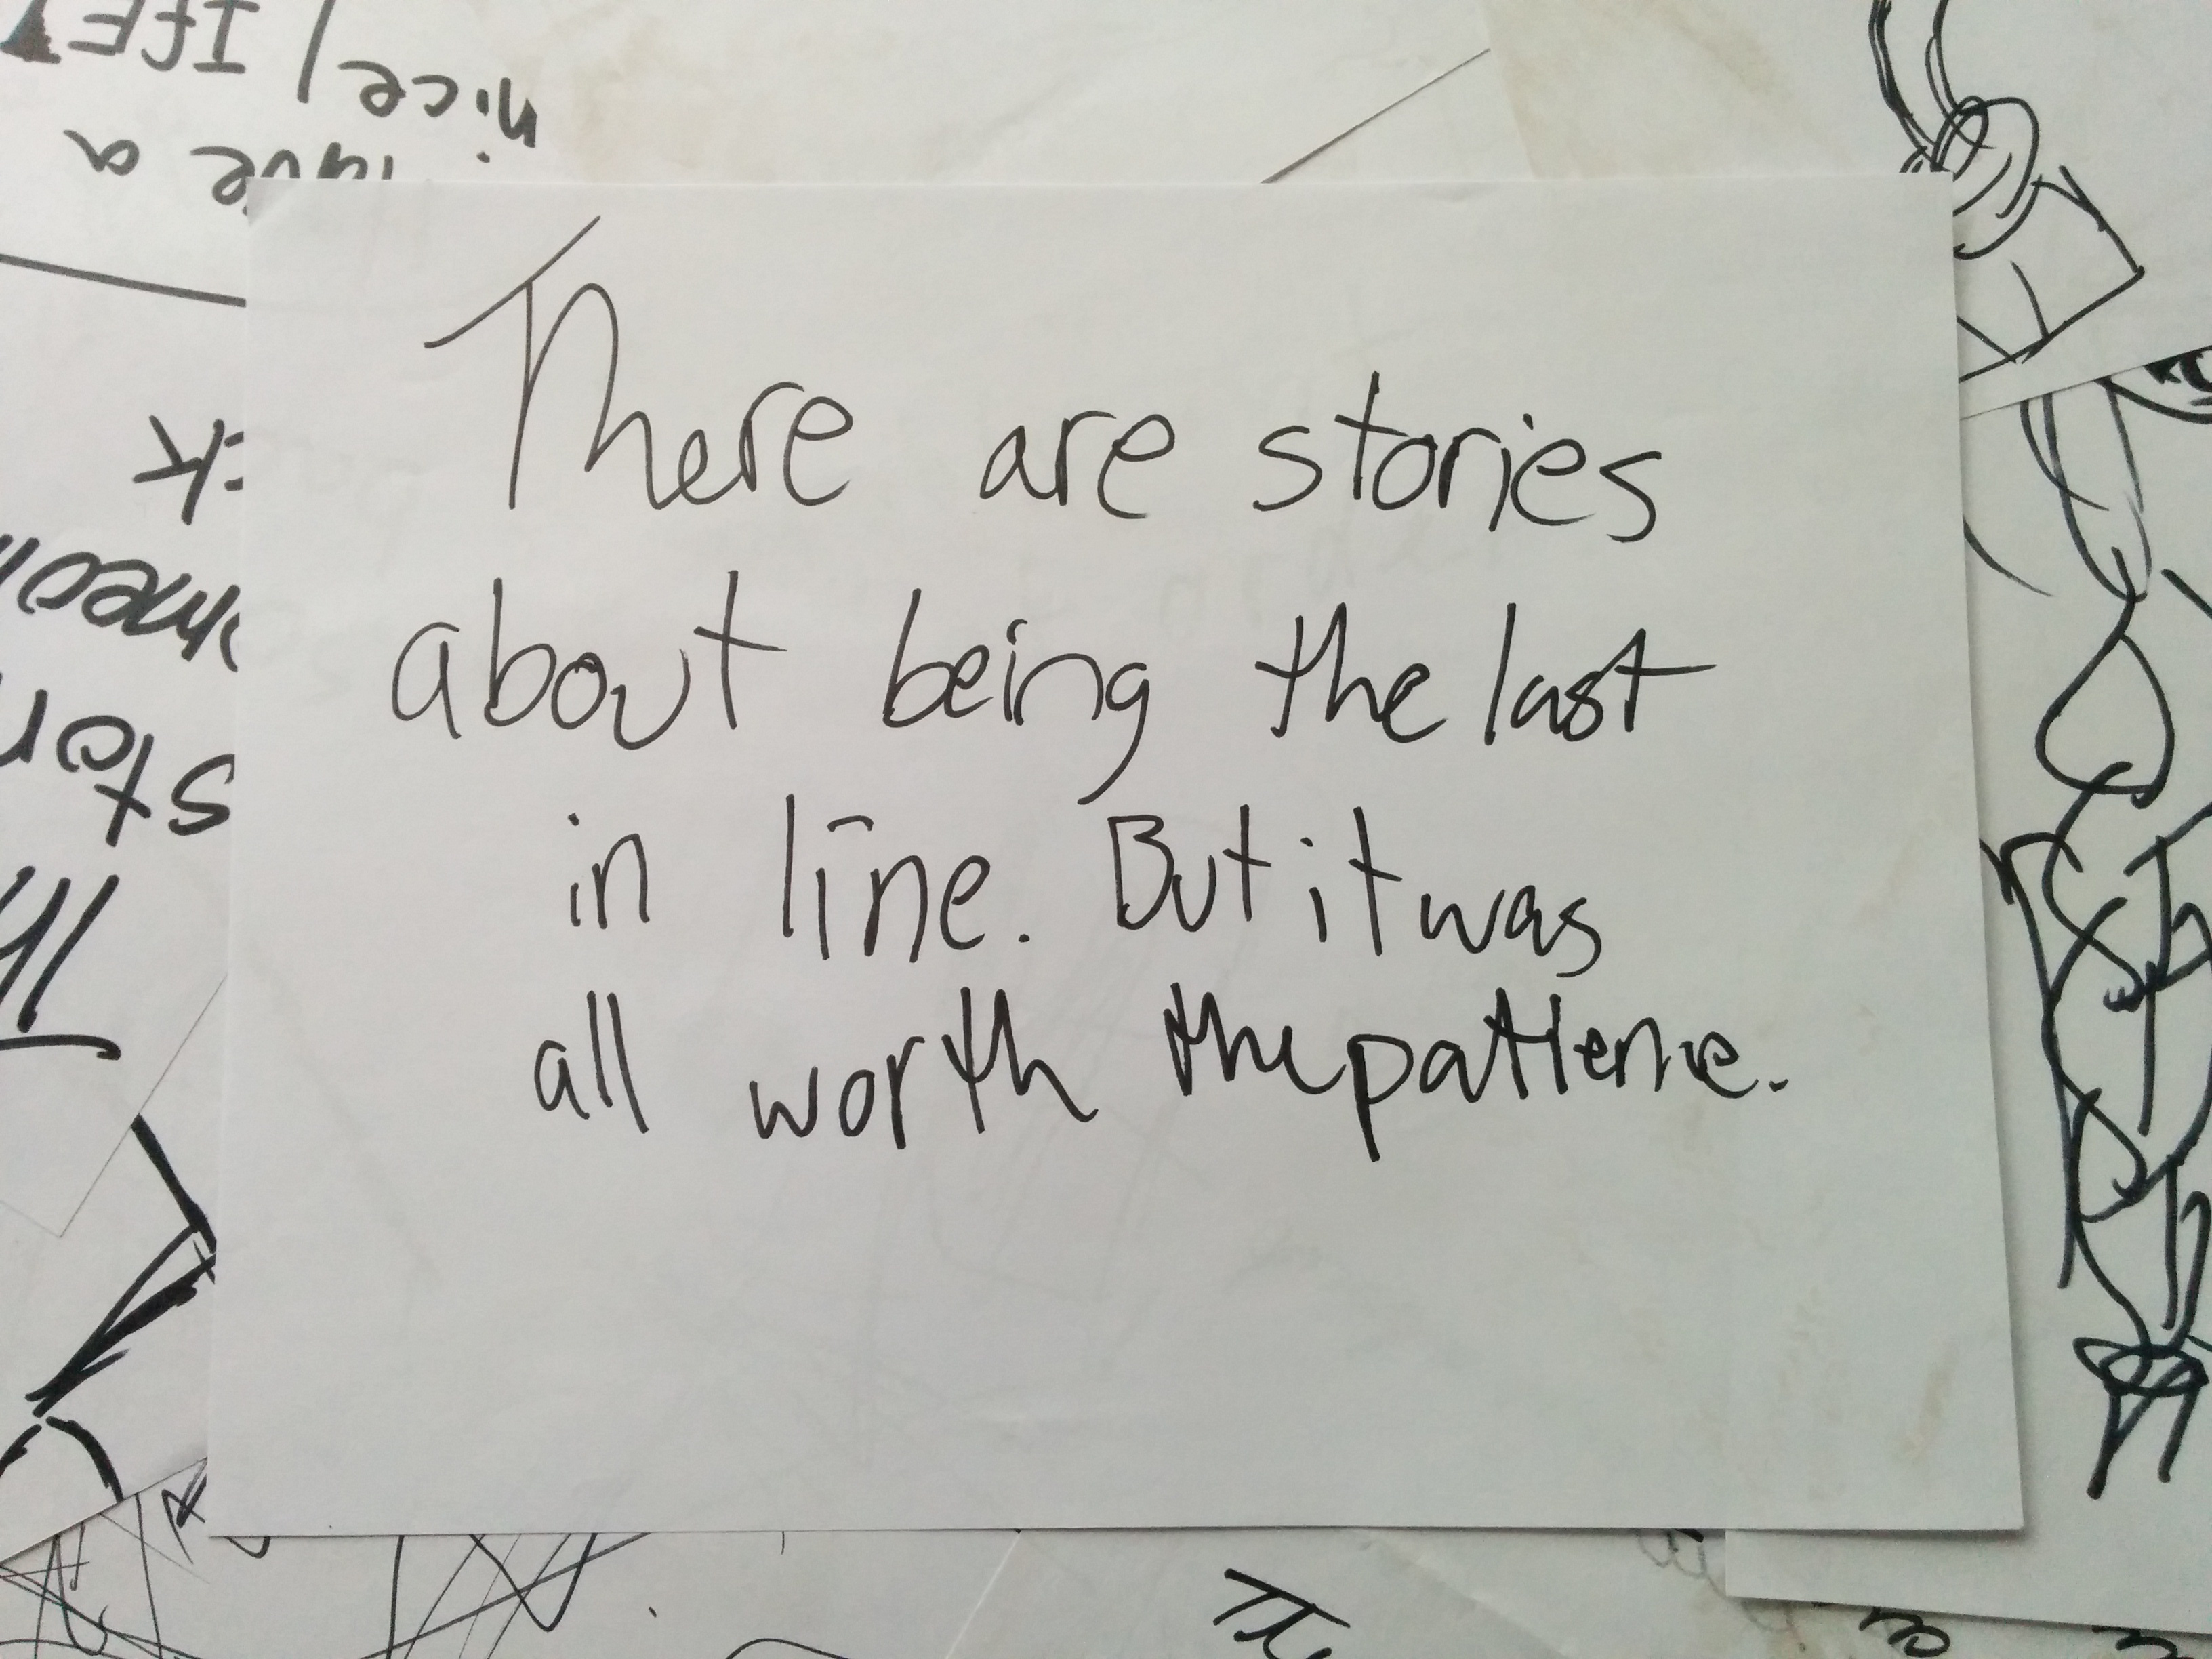 There are stories
about being the last
in line. But it was
all worth the patience.
nice / IfE
ave a
stor
Th